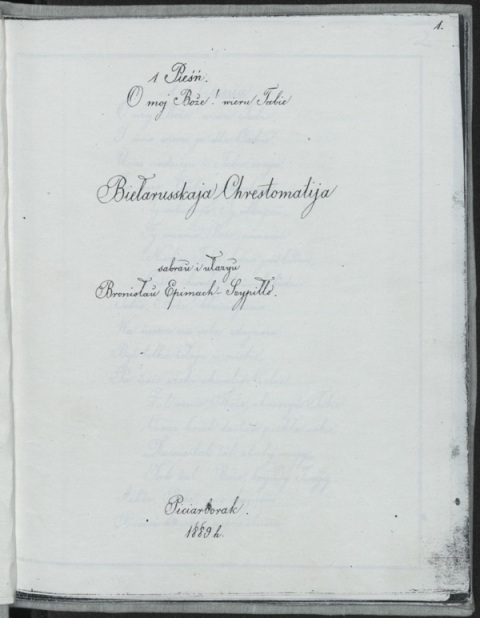 1.
1 Pieśń.
O moj Boże! wieru Tabie
Biełarusskaja Chrestomatija
sabraŭ i ułazyŭ
Bronisłaŭ Epimach-Szypiłło.
Piciarborak.
1889 h.